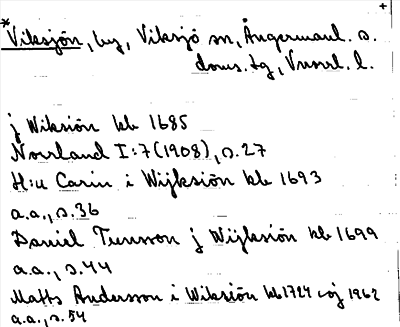 *Viksjön, by, Viksjö sn, Ångermanl. s.
doms. tg, Vnorrl. l.
j Wiksiön kb 1685
Norrland I:7 (1908), s. 27
H:u Carin i Wijksiön kb 1693
a.a., s. 36
Daniel Tunsson j Wijksiön kb 1699
a.a., s. 44
Matts Andersson i Wiksiön kb 1724 öj 1962
a.a., s. 54